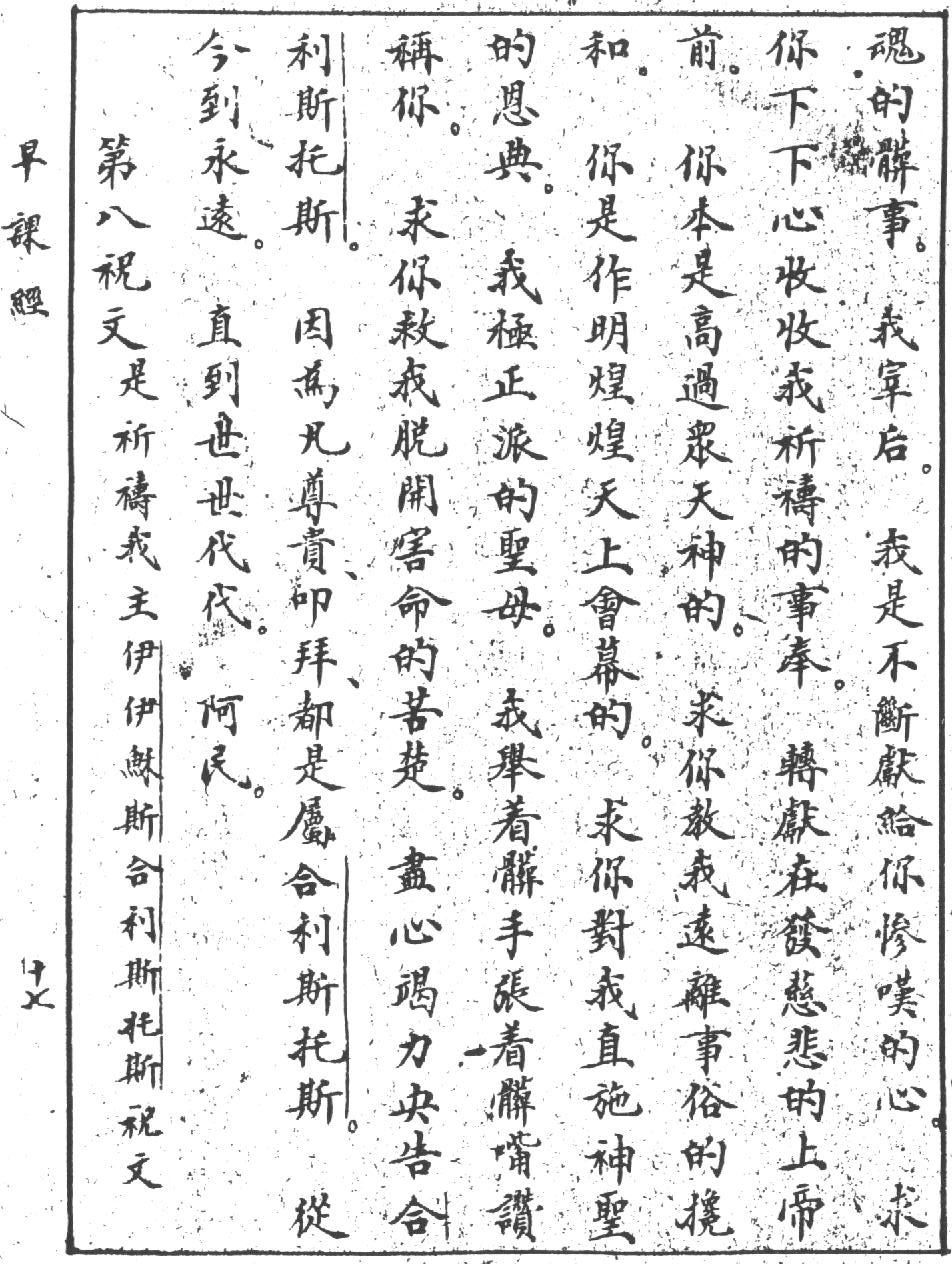 魂的髒事。我宰后。我是不斷獻給你慘嘆的心。求
你下下心收收我祈禱的事奉。轉獻在發慈悲的上帝
前。你本是高過眾天神的。求你教我遠離事俗的攙
和。你是作明煌煌天上會幕的。求你對我直施神聖
的恩典。我極正派的聖母。我舉着髒手張着髒嘴讚
稱你。求你救我脫開害命的苦楚。盡心竭力央告合
利斯托斯。因為凡尊貴、叩拜、都是屬合利斯托斯。從
今到永遠。直到世世代代。阿民。
第八祝文是祈禱我主伊伊穌斯合利斯托斯祝文
早課經